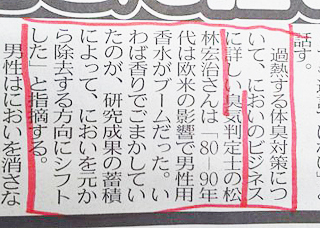 話す。
過熱する体臭対策につ
いて、においのビジネス
に詳しい臭気判定士の松
林宏治さんは「80―90年
代は欧米の影響で男性用
香水がブームだった。い
わば香りでごまかしてい
たのが、研究成果の蓄積
によって、においを元か
ら除去する方向にシフト
した」と指摘する。
男性はにおいを消さな